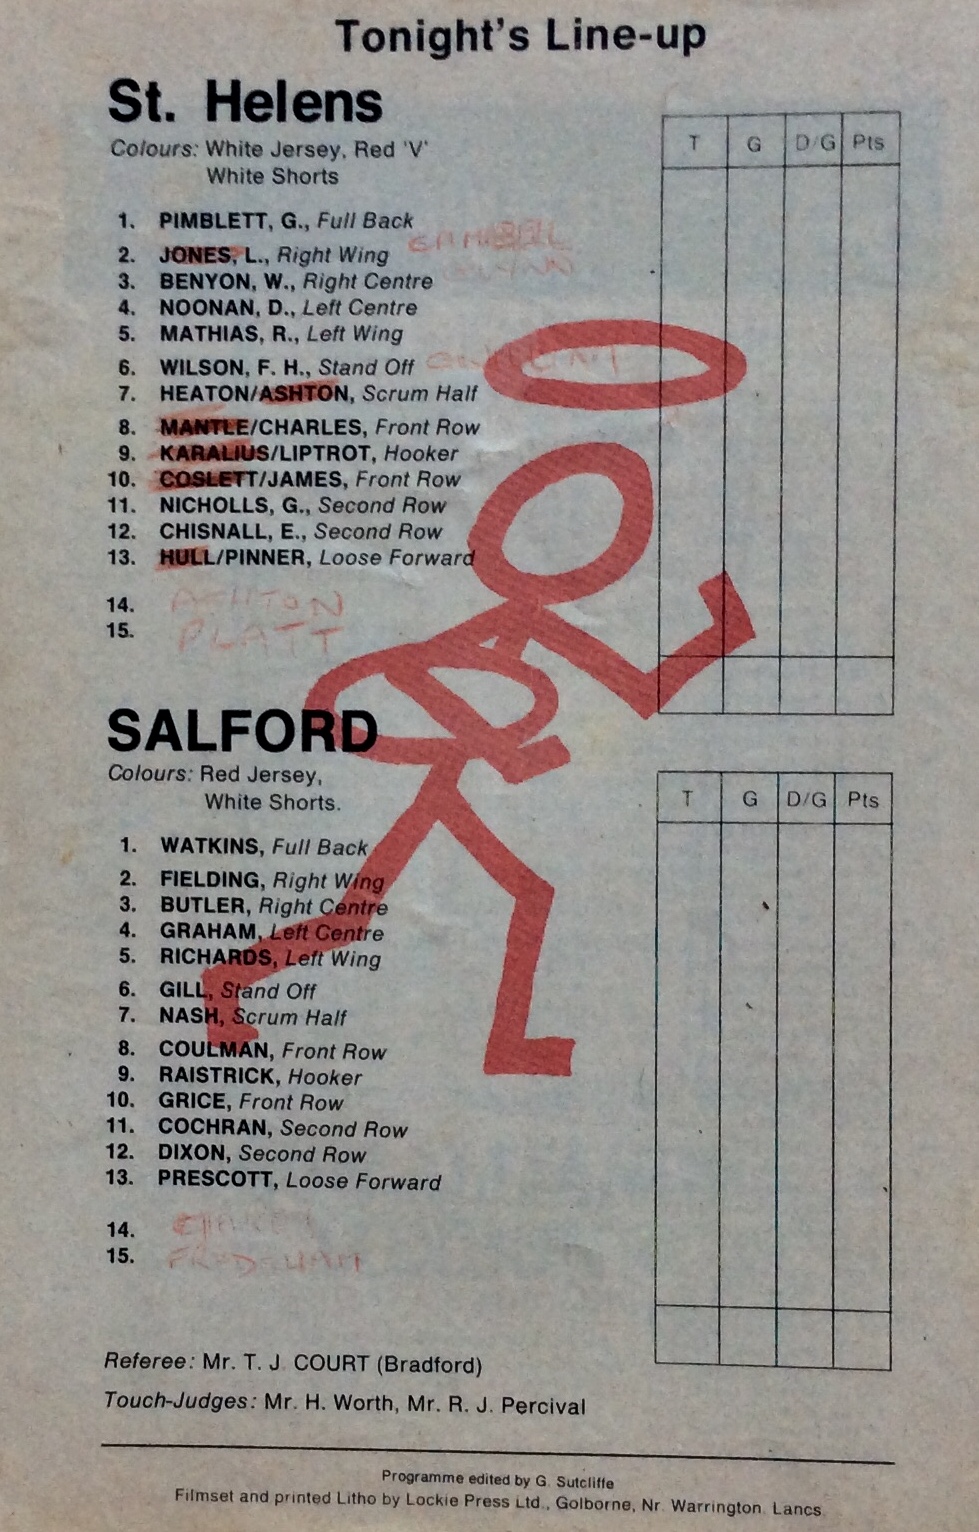 Tonight's Line-up
St. Helens
Colours: White Jersey, Red 'V'
White Shorts
T G D/G Pts
1. PIMBLETT, G., Full Back
2. JONES, L., Right Wing
3. BENYON, W., Right Centre
4. NOONAN, D., Left Centre
5. MATHIAS, R., Left Wing
6. WILSON, F. H., Stand Off
7. HEATON/ASHTON, Scrum Half
8. MANTLE/CHARLES, Front Row
9. KARALIUS/LIPTROT, Hooker
10. COSLETT/JAMES, Front Row
11. NICHOLLS, G., Second Row
12. CHISNALL, E., Second Row
13. HULL/PINNER, Loose Forward
14. ASHTON
15. PLATT
SALFORD
Colours: Red Jersey,
White Shorts.
T G D/G Pts
1. WATKINS, Full Back
2. FIELDING, Right Wing
3. BUTLER, Right Centre
4. GRAHAM, Left Centre
5. RICHARDS, Left Wing
6. GILL, Stand Off
7. NASH, Scrum Half
8. COULMAN, Front Row
9. RAISTRICK, Hooker
10. GRICE, Front Row
11. COCHRAN, Second Row
12. DIXON, Second Row
13. PRESCOTT, Loose Forward
14.
15. FRODSHAM
Referee: Mr. T. J. COURT (Bradford)
Touch-Judges: Mr. H. Worth, Mr. R. J. Percival
Programme edited by G. Sutcliffe
Filmset and printed Litho by Lockie Press Ltd., Golborne, Nr. Warrington. Lancs.